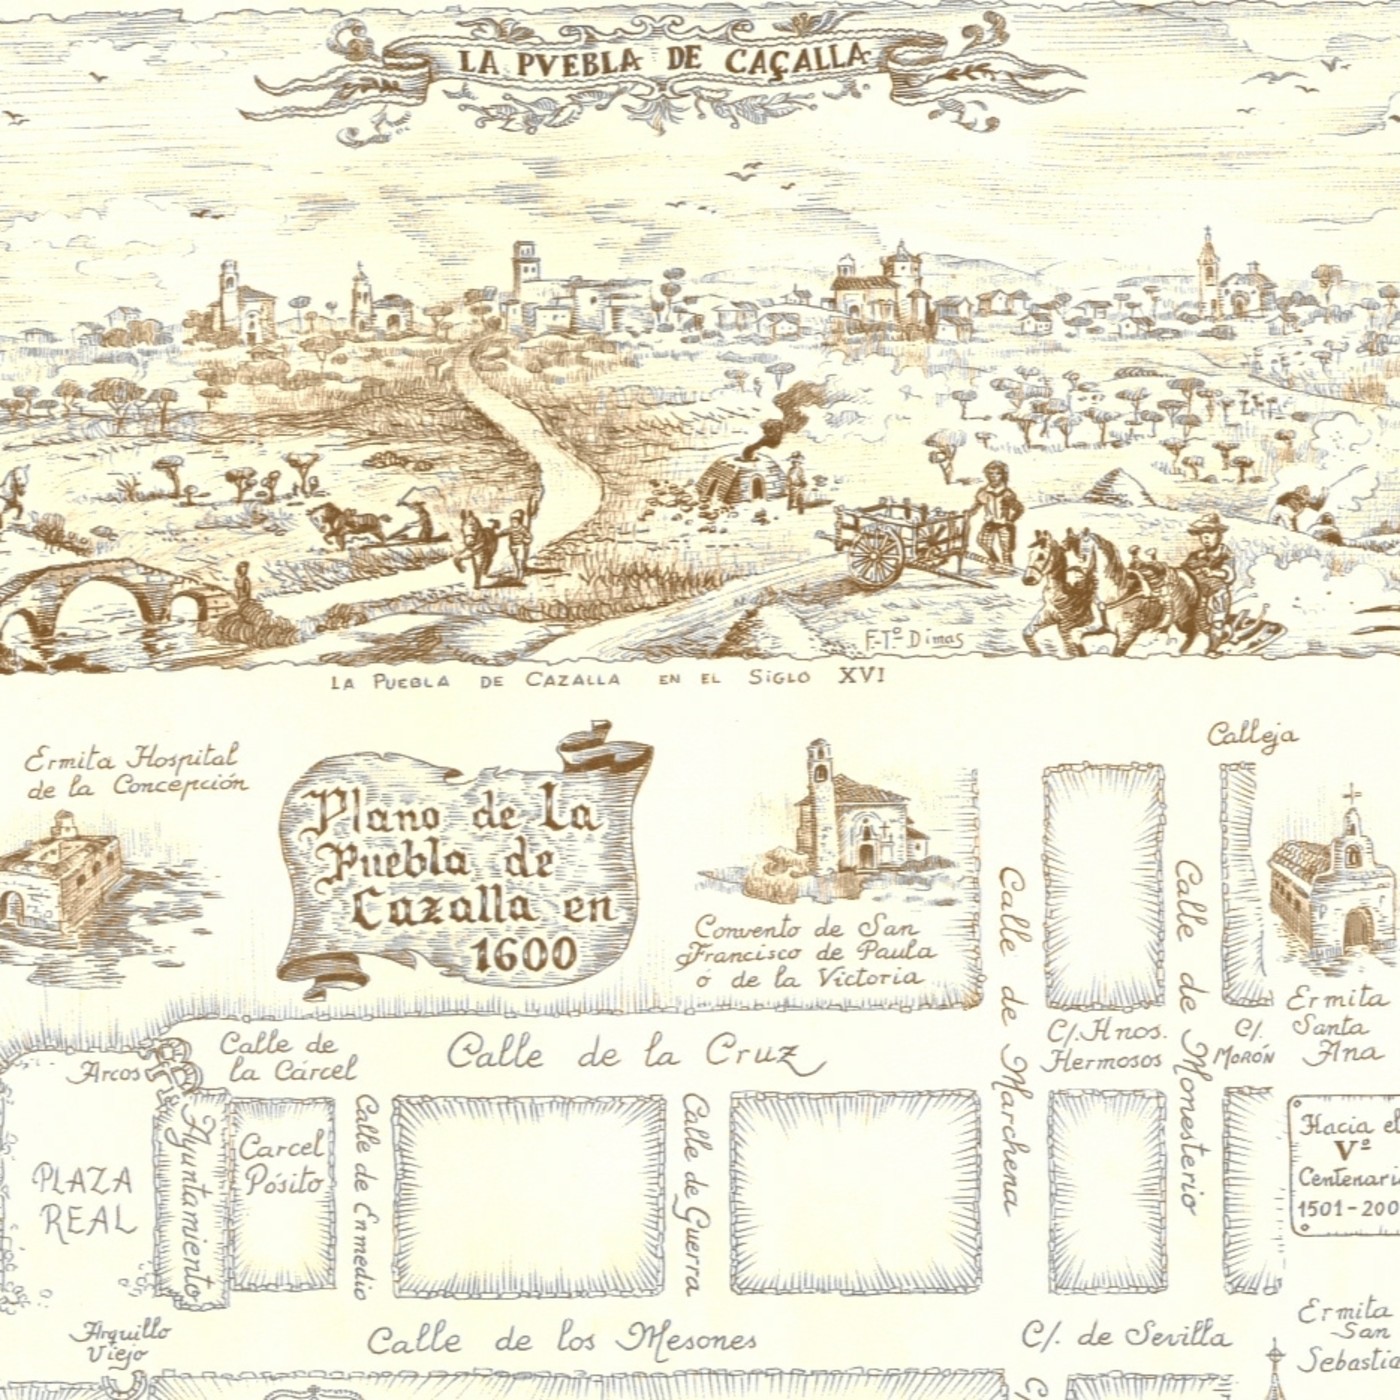 LA PVEBLA DE CAÇALLA
F-Tº Dimas
LA PUEBLA DE CAZALLA EN EL SiGLO XVI
Calleja
Ermita Hospital
de la Concepción
Plano de La
Puebla de
Cazalla en
1600
Convento de San
Francisco de Paula
ó de la Victoria
Calle de Marchena
Calle de Monesterio
Ermita
Santa
Ana
C/. Hnos.
Hermosos
C/.
MORÓN
Calle de
la Cárcel
Calle de la Cruz
Arcos
Ayuntamiento
Carcel
Pósito
Calle de Enmedio
Calle de Guerra
PLAZA
REAL
Hacia el
Vº
Centenari
1501-200
Arquillo
Viejo
Calle de los Mesones
C/. de Sevilla
Ermita
San
Sebastia